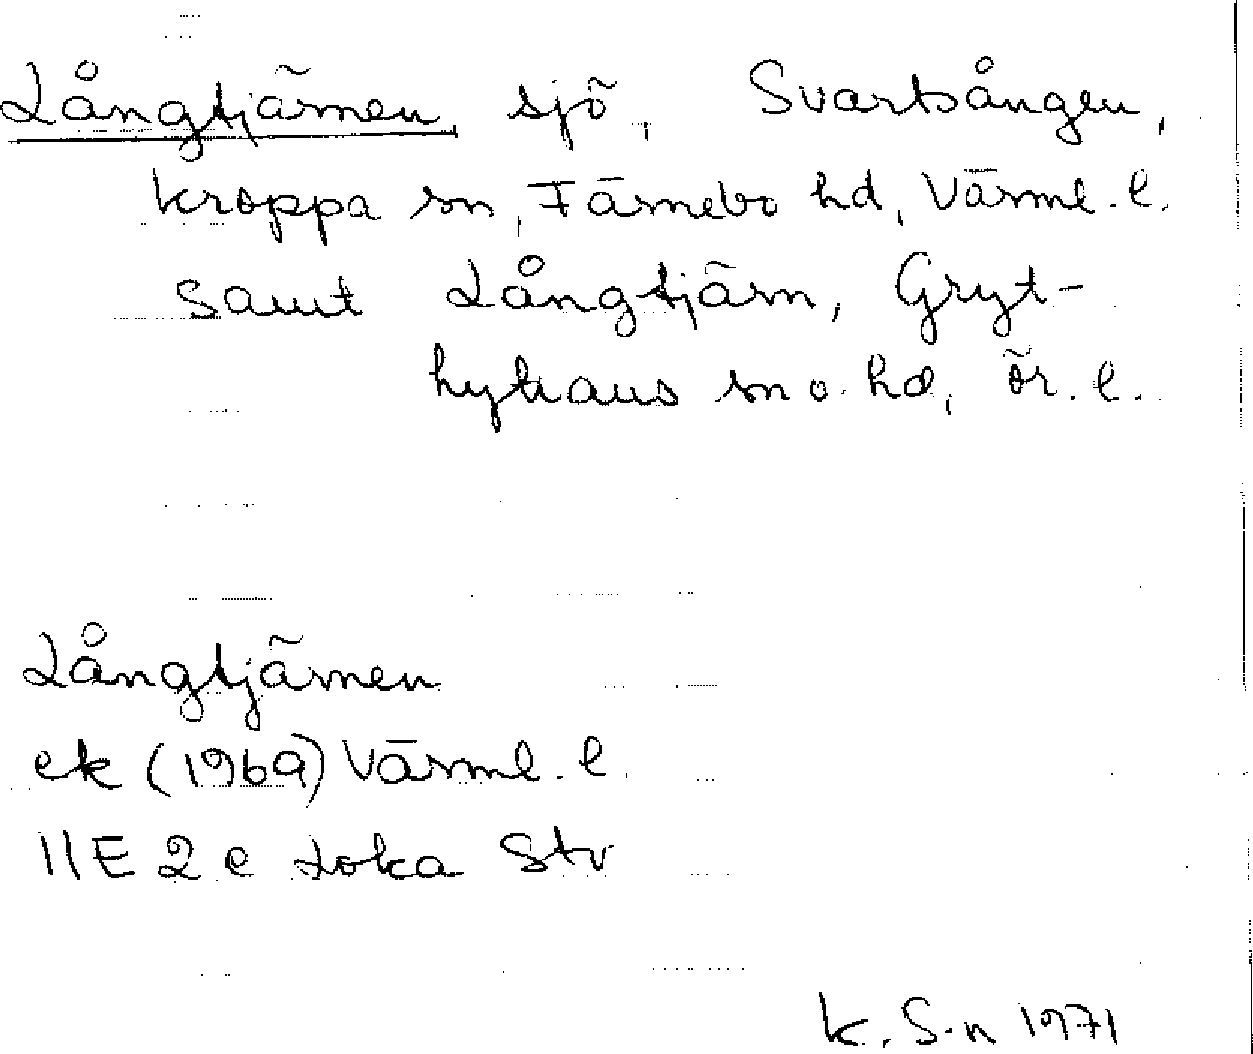 Långtjärnen sjö, Svartsången,
Kroppa sn, Färnebo hd, Värml. l.
samt Långtjärn, Gryt-
hyttans sn o. hd, Ör. l.
Långtjärnen
ek (1969) Värml. l.
11E 2e Loka Stv
K. S-n 1971